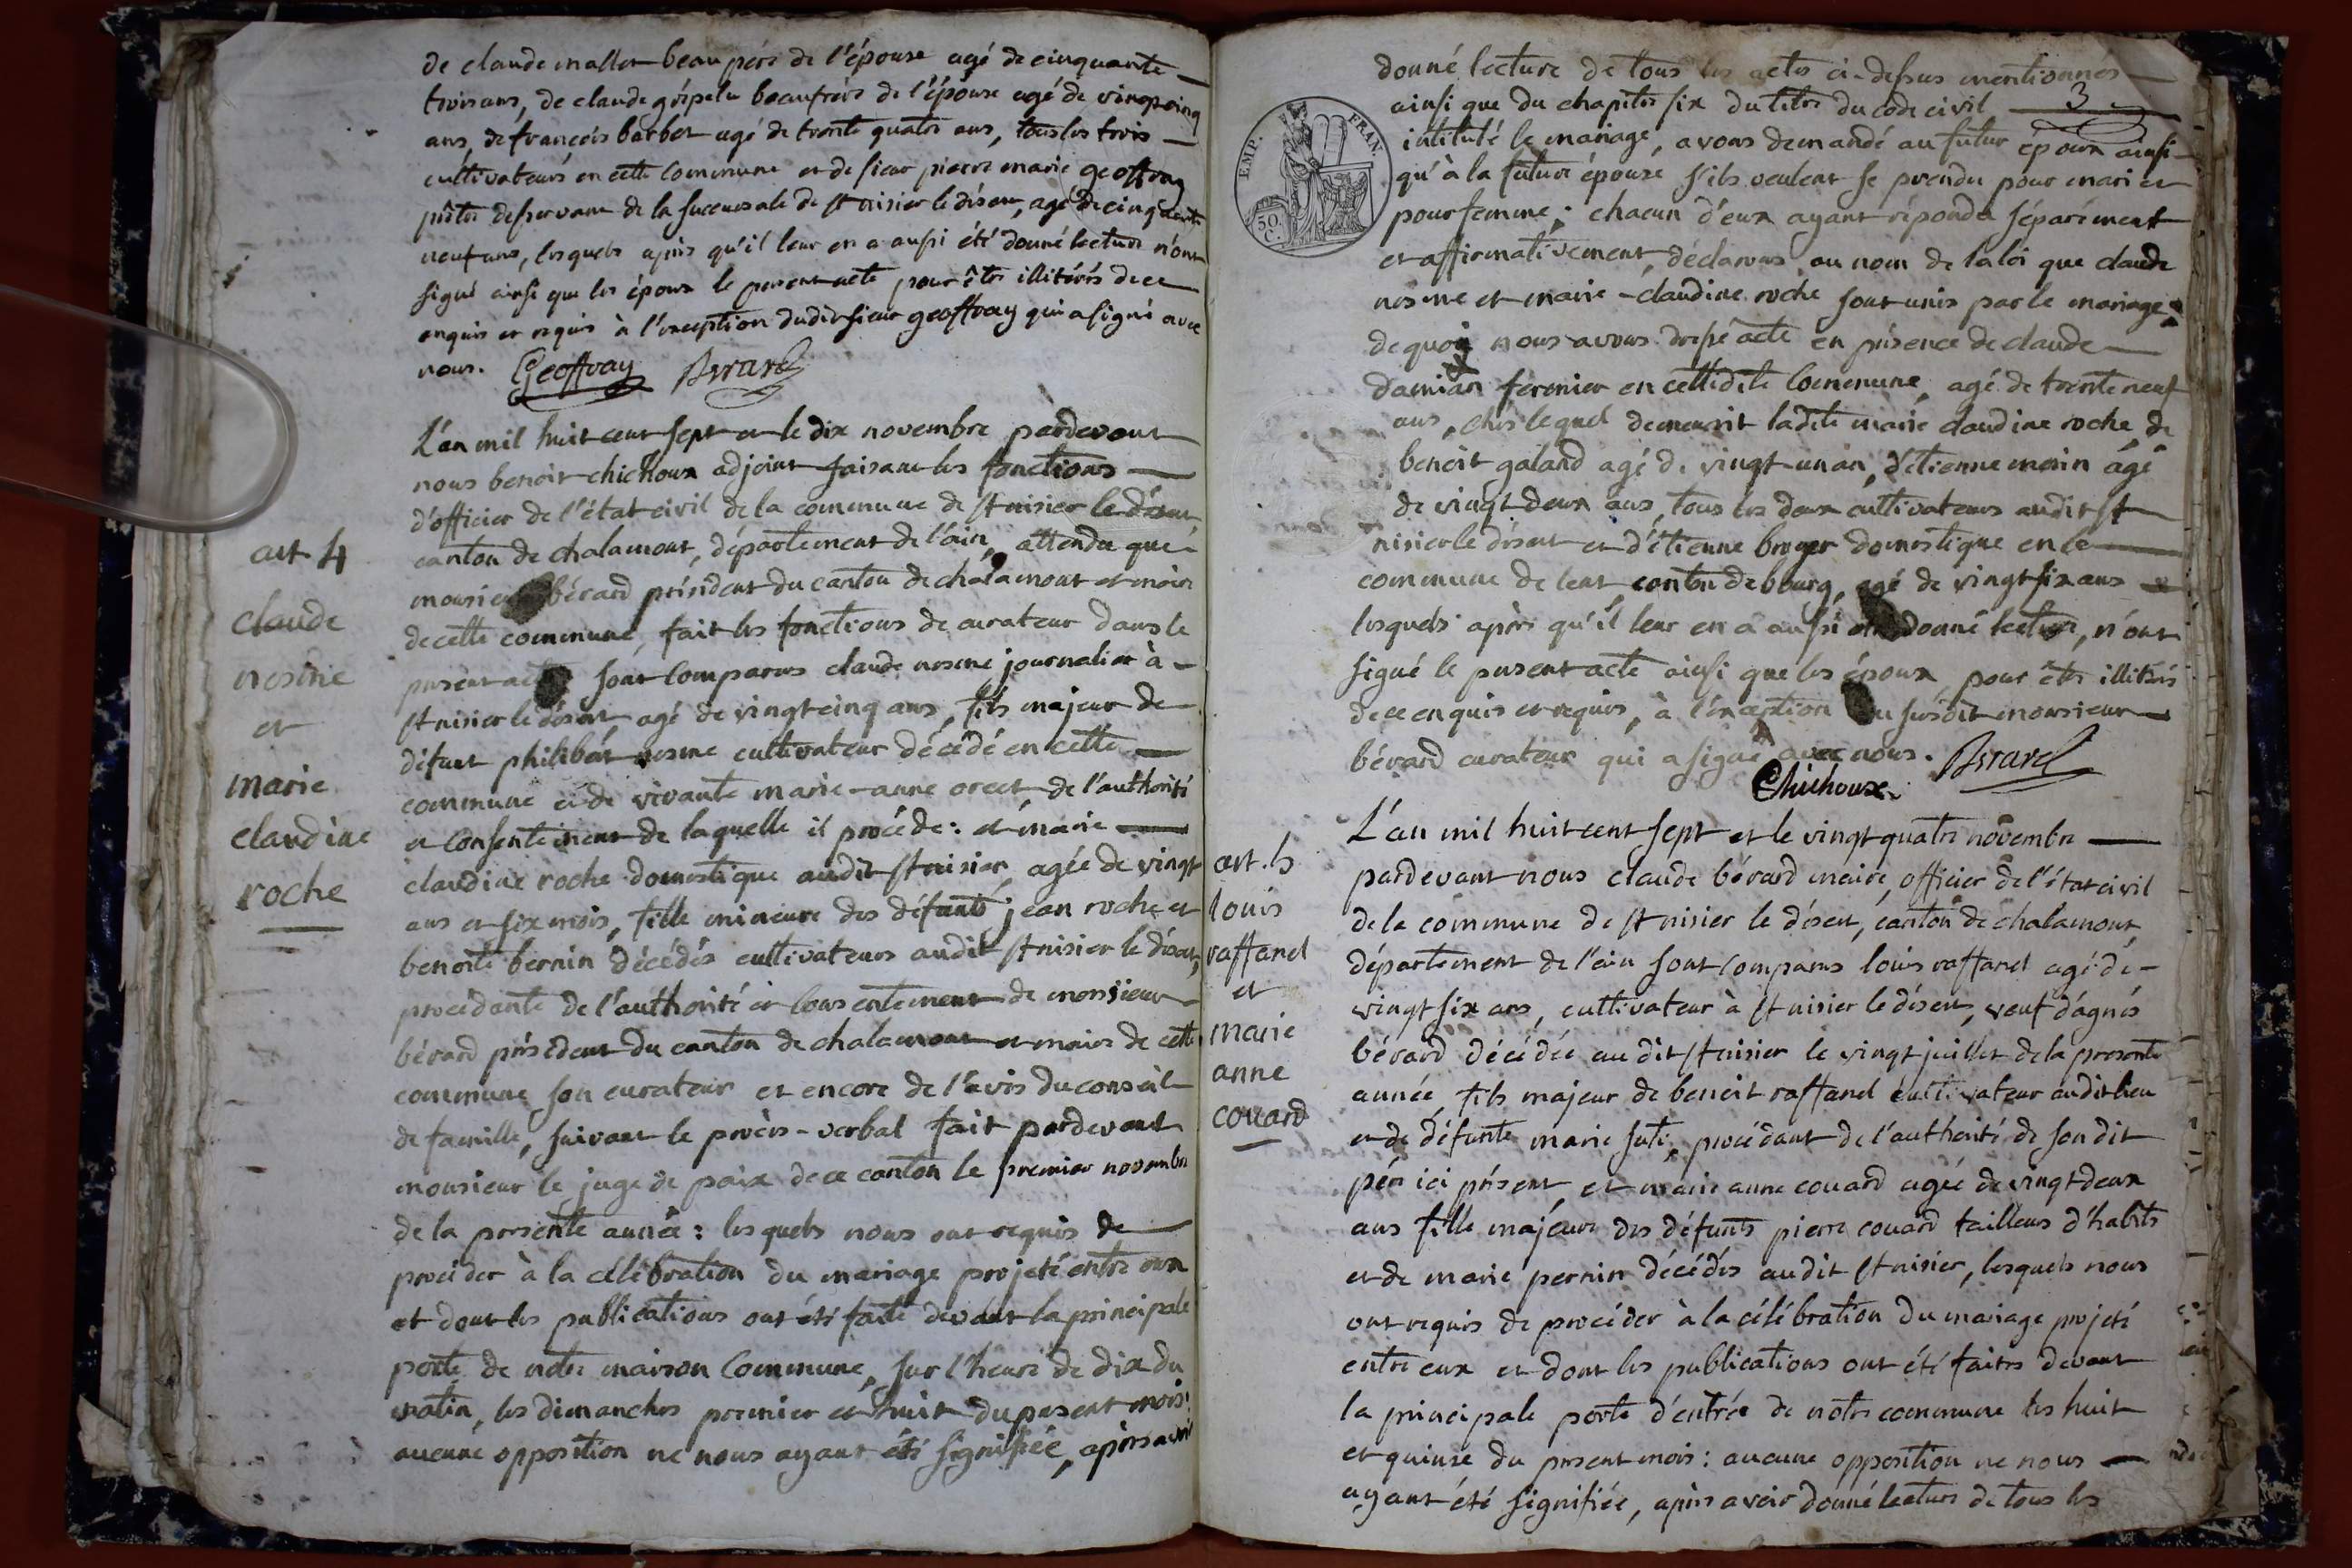 de claude mallet beau pére de l'épouse agé de cinquante
trois ans, de claude beaufrére de l'épouse agé de vingtcinq
ans, de françois barbet agé de trente quatre ans, tous les trois
cultivateurs en cette commune et de sieur pierre marie geoffray
prêtre desservant de la succursale de st nisier le désert, agé de cinquante
neuf ans, lesquels après qu'il leur en a aussi été donné lecture n'ont
signé ainsi que les époux le present acte pour être illitérés de ce
enquis et requis à l'exception dudit sieur geoffray qui a signé avec
nous. Geoffray Berard
L'an mil huit cent sept et le dix novembre pardevant
nous benoit chichoux adjoint faisant les fonctions
d'officier de l'état civil de la commune de st nisier le désert
canton de chalamont, département de l'ain, attendu que
monsieur bérard président du canton de chalamont et maire
de cette commune, fait les fonctions de curateur dans le
présent acte sont comparus claude nesme journalier à
st nisier le désert, agé de vingt cinq ans, fils majeur de
défunt philibert nesme cultivateur décédé en cette
commune et de vivante marie-anne orcet de l'authorité
et consentement de laquelle il procéde: et marie
claudine roche domestique audit st nisier, agée de vingt
ans et six mois, fille mineure des défunts jean roche et
benoite bernin décédés cultivateurs audit st nisier le désert,
procédante de l'authorité et consentement de monsieur
bérard président du canton de chalamont et maire de cette
commune son curateur et encore de l'avis du conseil
de famille, suivant le procès-verbal fait pardevant
monsieur le juge de paix de ce canton le premier novembre
de la presente année: lesquels nous ont requis de
procéder à la célébration du mariage projeté entre eux
et dont les publications ont été faite devant la principale
porte de notre maison commune, sur l'heure de dix du
matin, les dimanches premier et huit du present mois:
aucune opposition ne nous ayant été signifiée, après avoir
art 4
claude
nesme
et
marie
claudine
roche
donné lecture de tous les actes ci-dessus mentionnés
ainsi que du chapitre six du titre du code civil
3
intitulé le mariage, avons demandé au futur époux ainsi
qu'à la future épouse s'ils veulent se prendre pour mari et
pour femme; chacun d'eux ayant répondu séparément
et affirmativement, déclarons au nom de la loi que claude
nesme et marie-claudine roche sont unis par le mariage
de quoi nous avons dressé acte en présence de claude
damian fermier en cettedite commune, agé de trente neuf
ans, chés lequel demeurait ladite marie claudine roche de
benoit galand agé de vingt-un an, d'étienne morin agé
de vingt deux ans, tous les deux cultivateurs audit st
nisier le désert et d'étienne broyer domestique en la
commune de lent canton de bourg, agé de vingt six ans
lesquels après qu'il leur en a aussi été donné lecture, n'ont
signé le present acte ainsi que les époux pour être illitérés
de ce enquis et requis, à l'exception du susdit monsieur
bérard curateur qui a signé avec nous. Berard
Chichoux
EMP. FRAN.
50. C.
L'an mil huit cent sept et le vingt quatre novembre
pardevant nous claude bérard maire, officier de l'état civil
de la commune de st nisier le désert, canton de chalamont,
département de l'ain sont comparus louis raffanel agé de
vingt six ans, cultivateur à st nisier le désert, veuf d'agnés
bérard décédée audit st nisier le vingt juillet de la presente
année, fils majeur de benoit raffanel cultivateur audit lieu
et de défunte marie, procédant de l'authorité de son dit
pére ici présent, et marie anne couard agée de vingt deux
ans fille majeure des défunts pierre couard tailleurs d'habits
et de marie pernin décédés audit st nisier, lesquels nous
ont requis de procéder à la célébration du mariage projeté
entre eux et dont les publications ont été faites devant
la principale porte d'entrée de notre commune les huit
et quinze du present mois: aucune opposition ne nous
ayant été signifiée, après avoir donné lecture de tous les
art. 5
louis
raffanel
et
marie
anne
couard